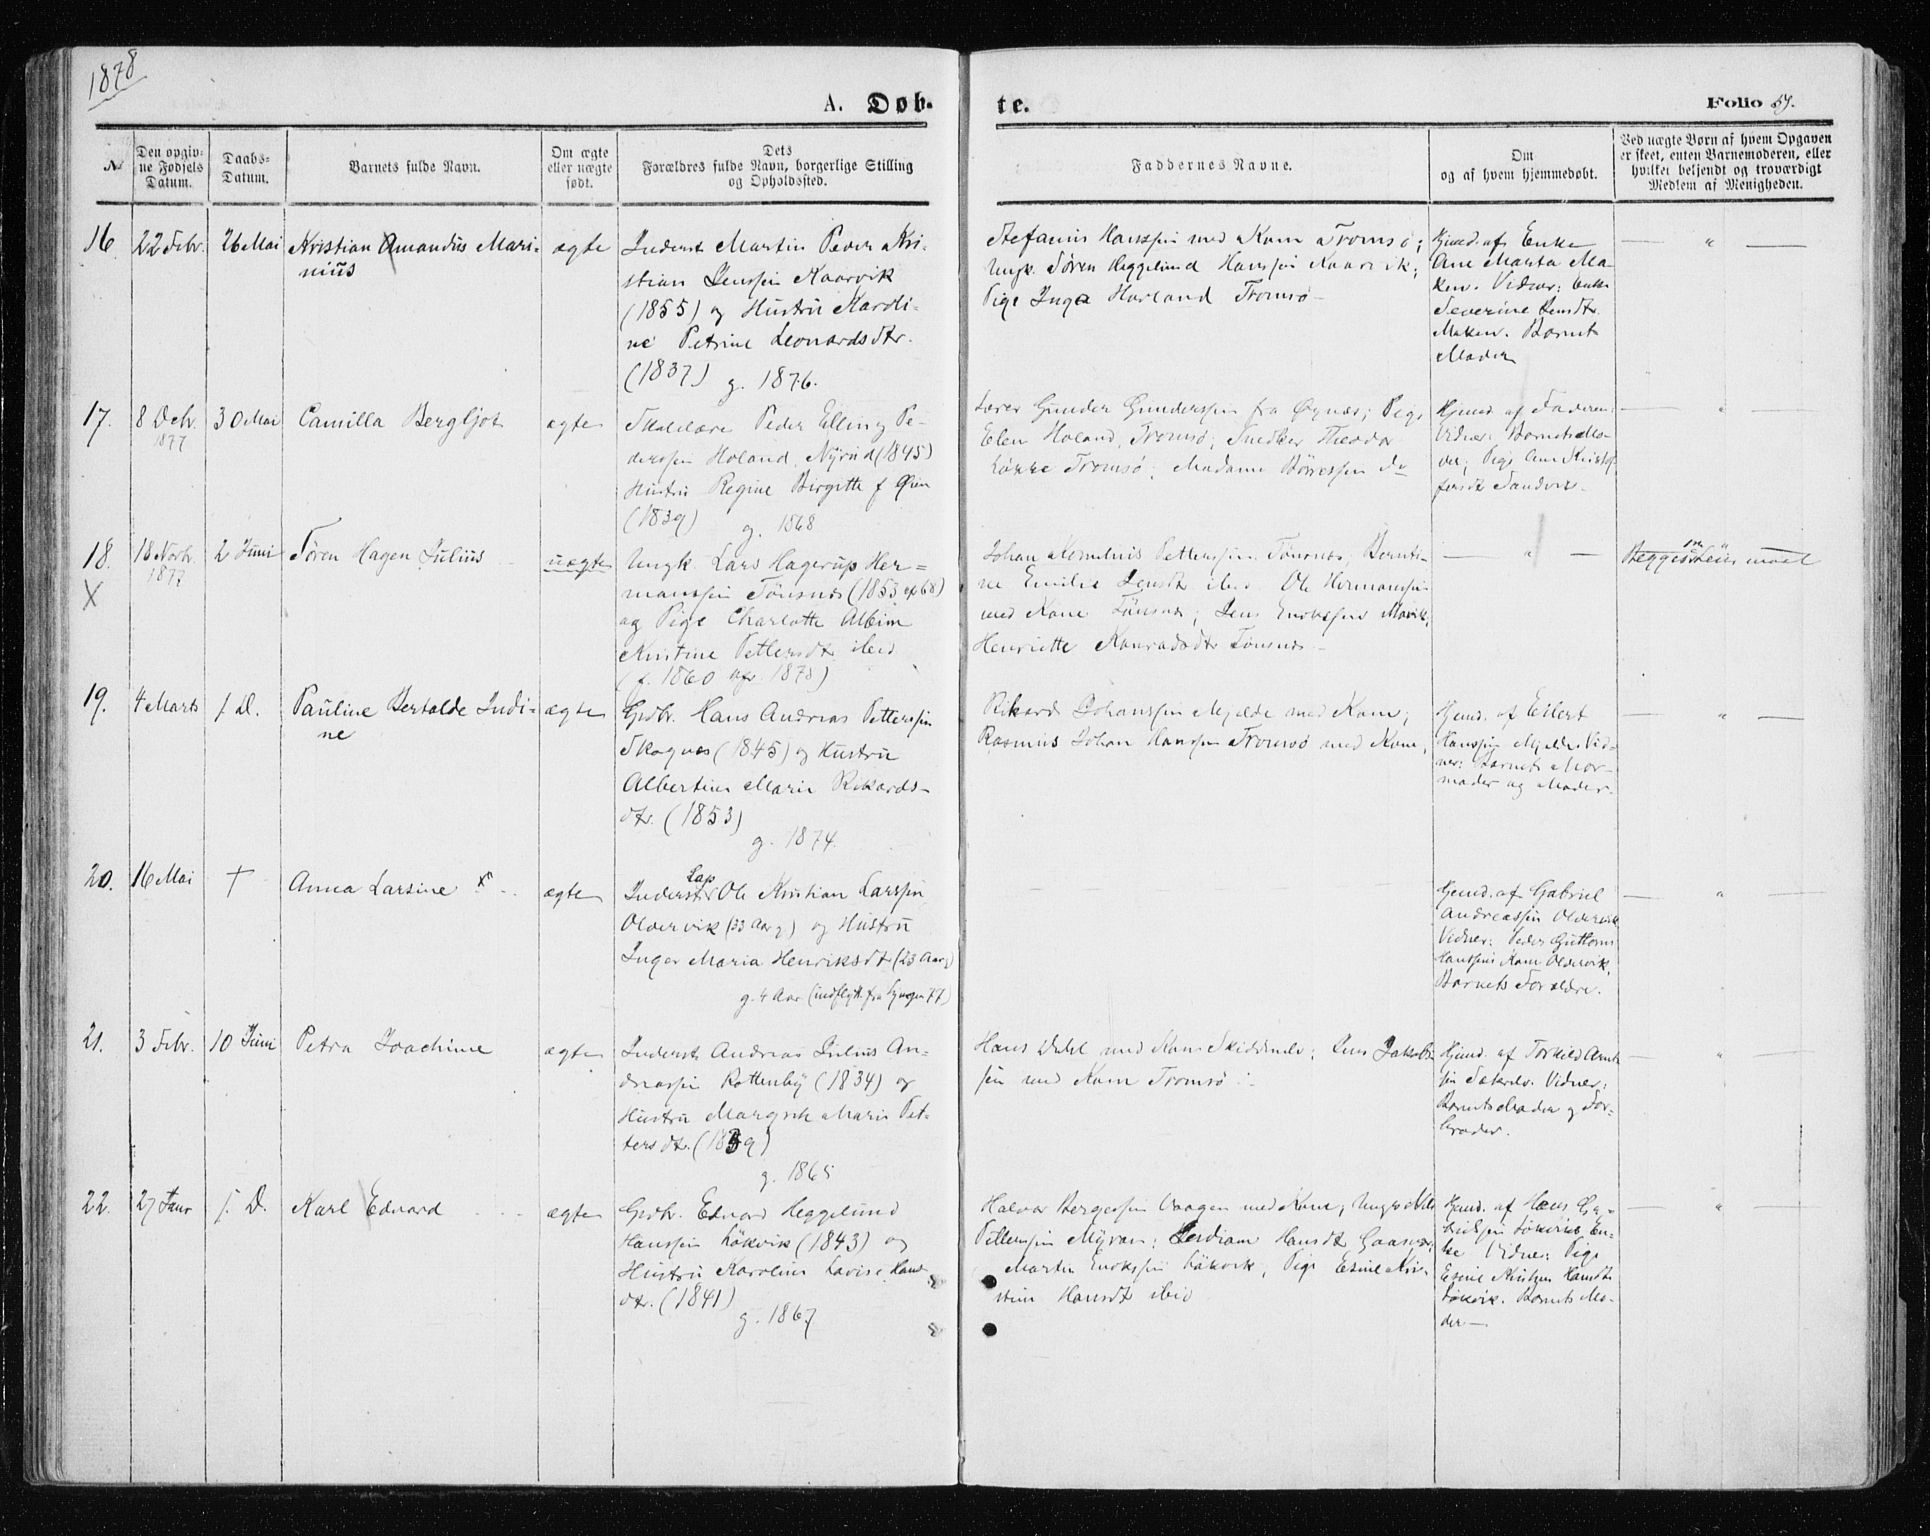 1878
A. Døb-
te.
Folio 57.
№
Den opgiv-
ne Fødsels
Datum.
Daabs-
Datum.
Barnets fulde Navn.
Om ægte
eller uægte
født.
Dets
Forældres fulde Navn, borgerlige Stilling
og Opholdssted.
Faddernes Navne.
Om
og af hvem hjemmedøbt.
Ved uægte Børn af hvem Opgaven
er skeet, enten Barnemoderen, eller
hvilket beljendt og troværdigt
Medlem af Menigheden.
16
22 Febr.
26 Mai
Kristian Amandus Mari-
nius
ægte
Inderst Martin Peder Kri-
stian Jenssen Kaarvik
(1855) og Hustru Karoli-
ne Petrine Leonardsdtr.
(1837) g. 1876.
Stefanus Hanssen med Kone Tromsø;
Ungk. Søren Heggelund Hanssen Kaarvik;
Pige Inga Horland Tromsø
Hjmd. af Enke
Ane Marta Ma-
ken. Vidner: Enke
Severine Jensdtr.
Maken. Barnets
Moder
17.
8 Debr.
1877
30 Mai
Camilla Bergljot
ægte
Skolelære Peder Elling Pe-
derssen Holand, Nyrud (1845)
Hustru Regine Birgitte f Øien
(1839) g. 1868
Lærer Gunder Gunderssen fra Øynæs; Pige
Elen Holand, Tromsø; Snedker Theodor
Løkke Tromsø; Madame Børressen do
Hjemd. af Faderen
Vidner: Barnets Mo-
der; Pige Ane Kristof-
fersdt Sandvik.
18.
X
18 Novbr.
1877
2 Juni
Søren Hagen Julius
uægte
Ungk. Lars Hagerup Her-
manssen Tønsnes (1853 68)
og Pige Charlotte Albine
Kristine Pettersdtr ibid
(f. 1860 1878)
Johan Kornelius Petterssen Tønsnes, Bernti-
ne Emilie Jensdt ibid. Ole Hermanssen
med Kone Tønsnes; Jens Enokssen Mavik;
Henriette Konradsdtr Tønsnes
Begges Leiermaal
19.
4 Marts
f. D.
Pauline Bertolde Indi-
ne
ægte
Grdbr. Hans Andreas Petterssen
Skognes (1845) og Hustru
Albertine Marie Rikards-
dtr. (1853)
g. 1874.
Rikard Johanssen Mjelde med Kone;
Rasmus Johan Hanssen Tromsø med Kone,
Hjemd. af Eilert
Hanssen Mjelde. Vid-
ner: Barnets Mor-
moder og Moder.
20.
16 Mai
†
Anna Larsine
ægte
Lap
Inderst Ole Kristian Larssen
Oldervik (33 Aar g.) og Hustru
Inger Maria Henriksdt (23 Aar g)
g. 4 Aar (indflytt. fra Lyngen 77)
Hjemd. af Gabriel
Andreassen Oldervik
Vidner: Peder Guttorm
Hanssens Kone Oldervik,
Barnets Forældre.
21.
3 Febr.
10 Juni
Petra Joachime
ægte
Inderst Andreas Julius An-
dreassen Kattenby (1834) og
Hustru Margrete Marie Pet-
tersdtr. (1839)
g. 1865
Hans Dahl med Kone Skiddenelv; Jens Jakob-
sen med Kone Tromsø
Hjemd. af Torkild Arnt-
sen Sækrelv. Vidner:
Barnets Moder og For-
brodor.
22.
27 Janr
f. D.
Karl Edvard
ægte
Grdbr. Edvard Heggelund
Hanssen Løkvik (1843) og
Hustru Karoline Lovise Hans-
dtr. (1841)
g. 1867
Halvor Bergessen Vaagen med Kone; Ungk Nils
Petterssen Myran; Jerdiam Hansdt Gaasvær;
Martin Enokssen Løkvik, Pige Esine Kri-
stine Hansdt ibid
Hjemd. af Hans Ga-
brielssen Løkviks En-
ke Vidner: Pige
Esine Kristine Hansdtr
Løkvik. Barnets Mo-
der